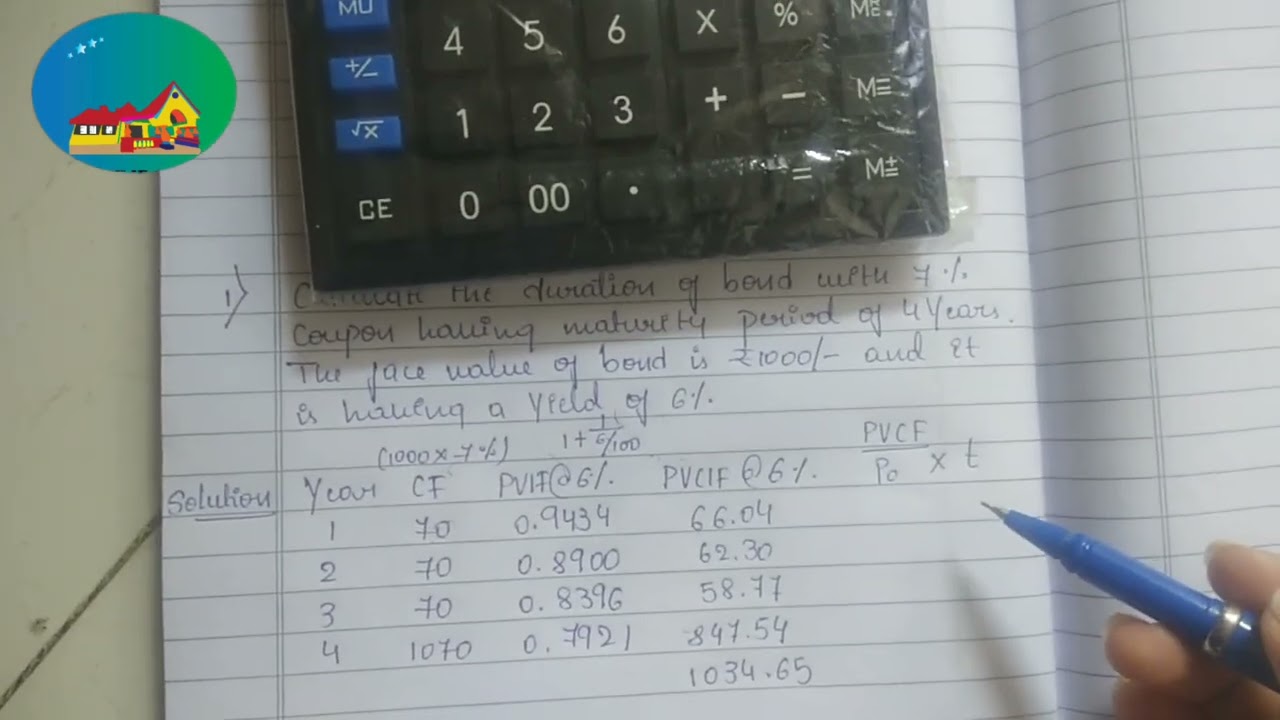 MU 4 5 6 X %
+/- 1 2 3 + - M=
√x
CE 0 00 . = M±
1) the duration of bond with 7%
Coupon having maturity period of 4 Years.
The face value of bond is ₹1000/- and it
is having a Yield of 6%.
(1000×7%) 1/1+6/100 PVCF/P0 × t
Solution Year CF PVIF@6% PVCIF@6%
1 70 0.9434 66.04
2 70 0.8900 62.30
3 70 0.8396 58.77
4 1070 0.7921 847.54
1034.65